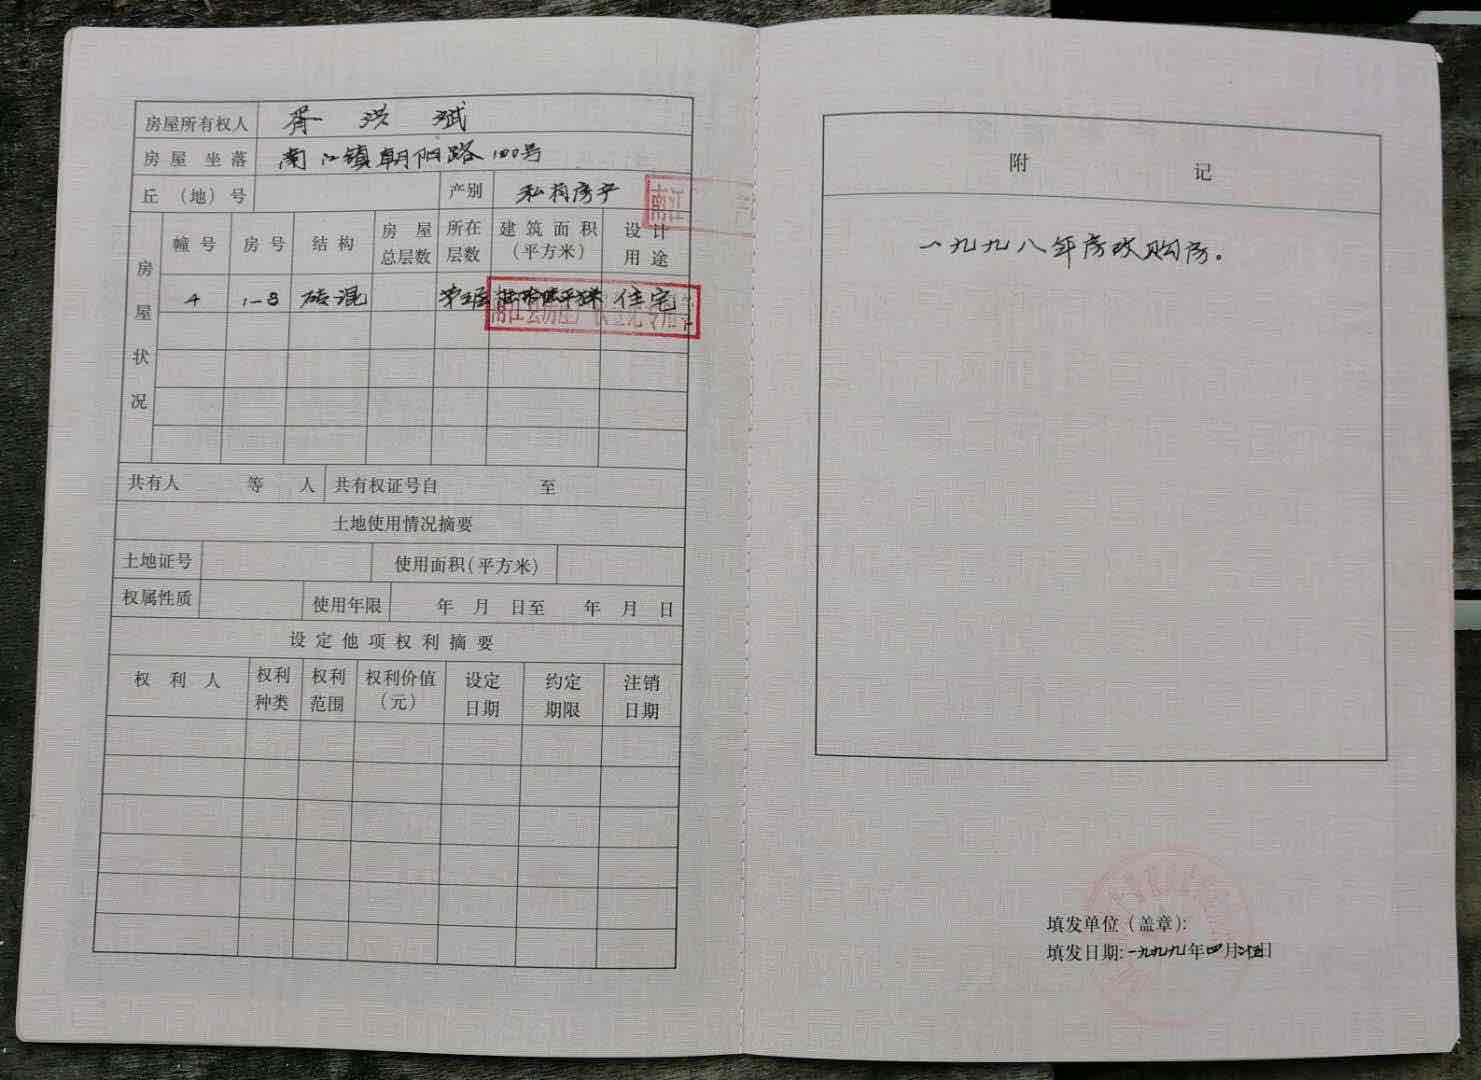 房屋所有权人 胥洪斌
房屋坐落 南江镇朝阳路100号
丘（地）号 产别 私有房产
房屋状况
幢号 房号 结构 房屋总层数 所在层数 建筑面积（平方米） 设计用途
4 1-3 砖混 住宅
共有人 等 人 共有权证号自 至
土地使用情况摘要
土地证号 使用面积(平方米)
权属性质 使用年限 年 月 日至 年 月 日
设定他项权利摘要
权利人 权利种类 权利范围 权利价值（元） 设定日期 约定期限 注销日期
附 记
一九九八年房改购房。
填发单位（盖章）:
填发日期:一九九九年四月 日